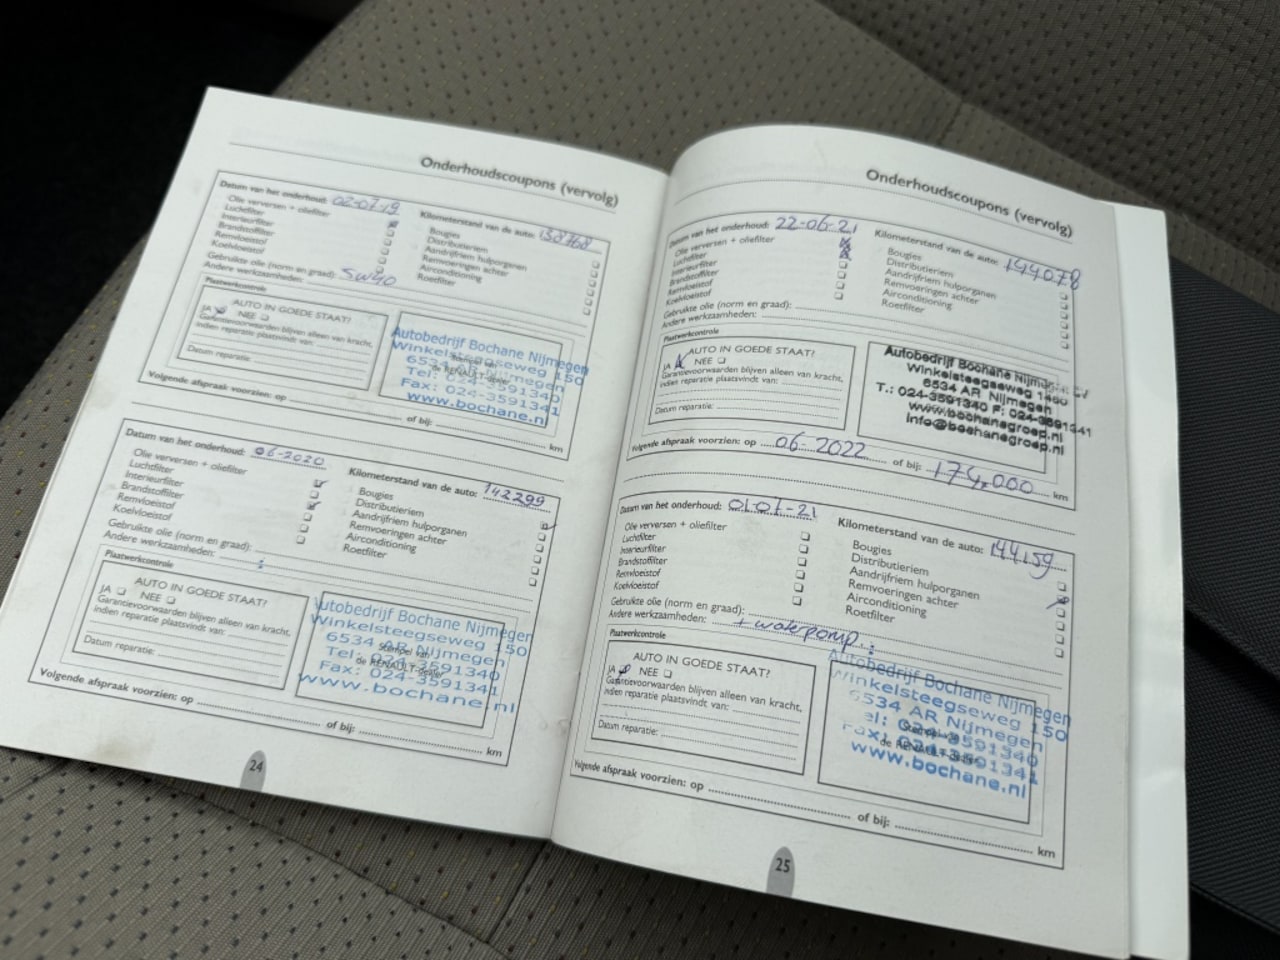 Onderhoudscoupons (vervolg)
Datum van het onderhoud: 02-07-19
Kilometerstand van de auto: 138768
Olie verversen + oliefilter
Luchtfilter
Interieurfilter
Brandstoffilter
Remvloeistof
Koelvloeistof
Bougies
Distributieriem
Aandrijfriem hulporganen
Remvoeringen achter
Airconditioning
Roetfilter
Gebruikte olie (norm en graad): 5W40
Andere werkzaamheden:
Plaatwerkcontrole
AUTO IN GOEDE STAAT?
JA NEE
Garantievoorwaarden blijven alleen van kracht,
indien reparatie plaatsvindt van:
Datum reparatie:
Autobedrijf Bochane Nijmegen
Winkelsteegseweg 150
6534 AR Nijmegen
Tel: 024-3591340
Fax: 024-3591341
www.bochane.nl
Volgende afspraak voorzien: op of bij: km
Datum van het onderhoud: 06-2020
Kilometerstand van de auto: 142299
Olie verversen + oliefilter
Luchtfilter
Interieurfilter
Brandstoffilter
Remvloeistof
Koelvloeistof
Bougies
Distributieriem
Aandrijfriem hulporganen
Remvoeringen achter
Airconditioning
Roetfilter
Gebruikte olie (norm en graad):
Andere werkzaamheden:
Plaatwerkcontrole
AUTO IN GOEDE STAAT?
JA NEE
Garantievoorwaarden blijven alleen van kracht,
indien reparatie plaatsvindt van:
Datum reparatie:
Autobedrijf Bochane Nijmegen
Winkelsteegseweg 150
6534 AR Nijmegen
Stempel van
Tel: 024-3591340
de RENAULT-dealer
Fax: 024-3591341
www.bochane.nl
Volgende afspraak voorzien: op of bij: km
24
Onderhoudscoupons (vervolg)
Datum van het onderhoud: 22-06-21
Kilometerstand van de auto: 144078
Olie verversen + oliefilter
Luchtfilter
Interieurfilter
Brandstoffilter
Remvloeistof
Koelvloeistof
Bougies
Distributieriem
Aandrijfriem hulporganen
Remvoeringen achter
Airconditioning
Roetfilter
Gebruikte olie (norm en graad):
Andere werkzaamheden:
Plaatwerkcontrole
AUTO IN GOEDE STAAT?
JA NEE
Garantievoorwaarden blijven alleen van kracht,
indien reparatie plaatsvindt van:
Datum reparatie:
Autobedrijf Bochane Nijmegen
Winkelsteegseweg
6534 AR Nijmegen
T.: 024-3591340 F: 024-3591341
www.bochanegroep.nl
info@bochanegroep.nl
Volgende afspraak voorzien: op 06-2022 of bij: 174.000 km
Datum van het onderhoud: 01-07-21
Kilometerstand van de auto: 144159
Olie verversen + oliefilter
Luchtfilter
Interieurfilter
Brandstoffilter
Remvloeistof
Koelvloeistof
Bougies
Distributieriem
Aandrijfriem hulporganen
Remvoeringen achter
Airconditioning
Roetfilter
Gebruikte olie (norm en graad):
Andere werkzaamheden: + waterpomp
Plaatwerkcontrole
AUTO IN GOEDE STAAT?
JA NEE
Garantievoorwaarden blijven alleen van kracht,
indien reparatie plaatsvindt van:
Datum reparatie:
Autobedrijf Bochane Nijmegen
Winkelsteegseweg 150
6534 AR Nijmegen
Tel: 024-3591340
Fax: 024-3591341
www.bochane.nl
Volgende afspraak voorzien: op of bij: km
25